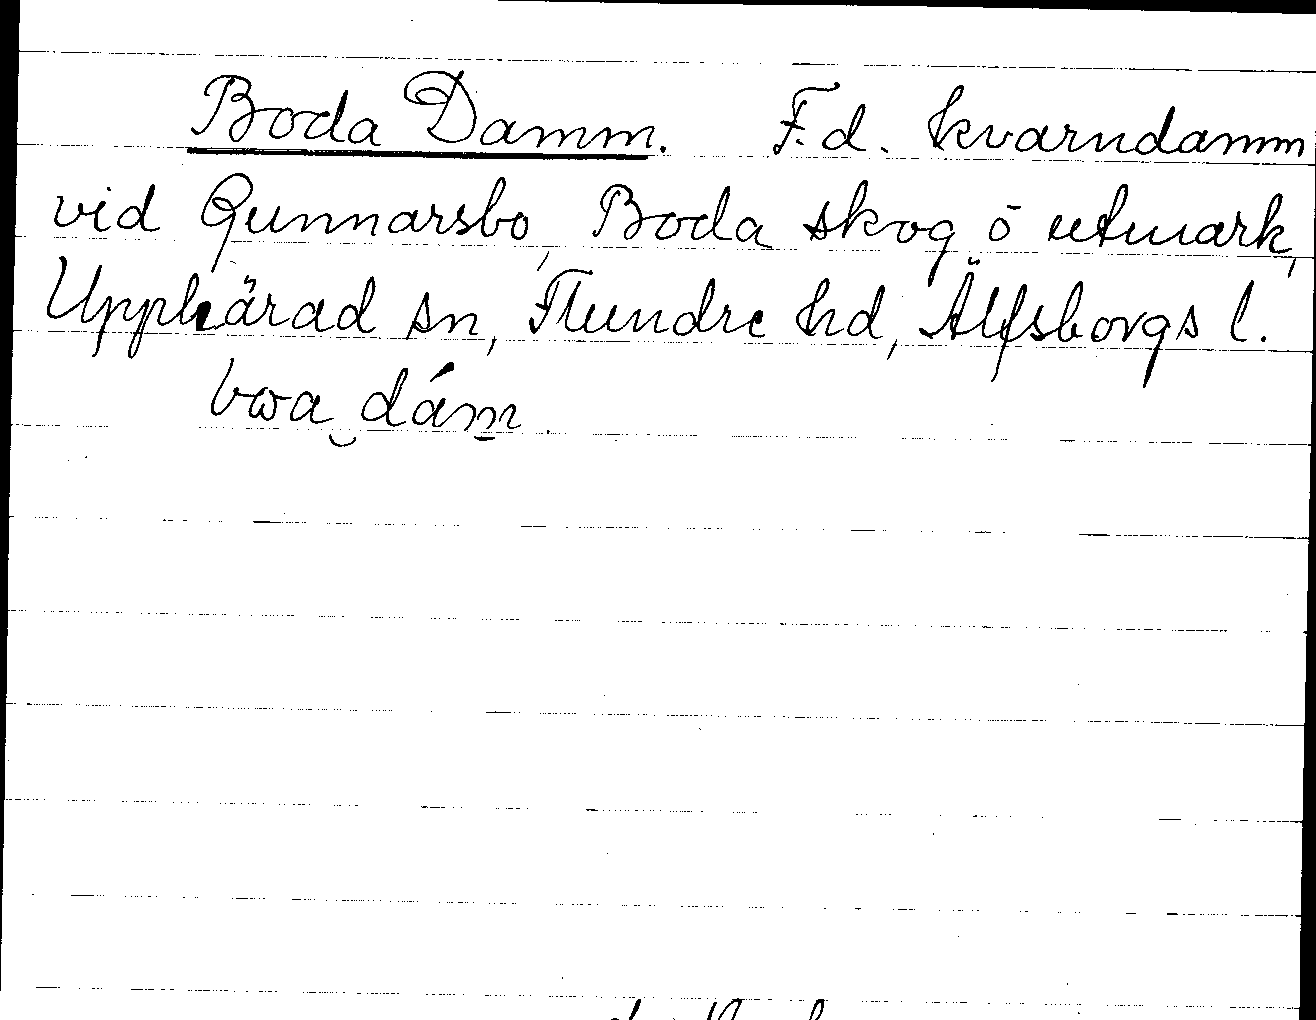 Boda Damm. F.d. kvarndamm
vid Gunnarsbo, Boda skog o utmark,
Upphärad sn, Flundre hd, Älfsborgs l.